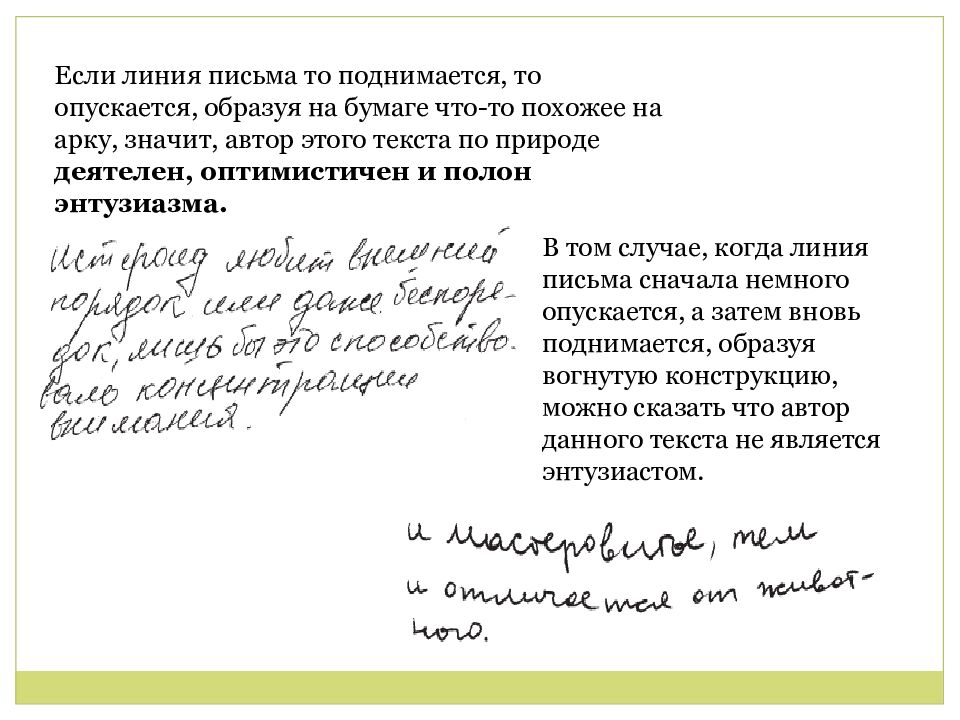 Если линия письма то поднимается, то
опускается, образуя на бумаге что-то похожее на
арку, значит, автор этого текста по природе
деятелен, оптимистичен и полон
энтузиазма.
Истероид любит внешний
порядок или даже беспоре-
док, лишь бы это способство-
вало концентрации
внимания.
В том случае, когда линия
письма сначала немного
опускается, а затем вновь
поднимается, образуя
вогнутую конструкцию,
можно сказать что автор
данного текста не является
энтузиастом.
и мастеровитье, тем
и отличается от живот-
ного.